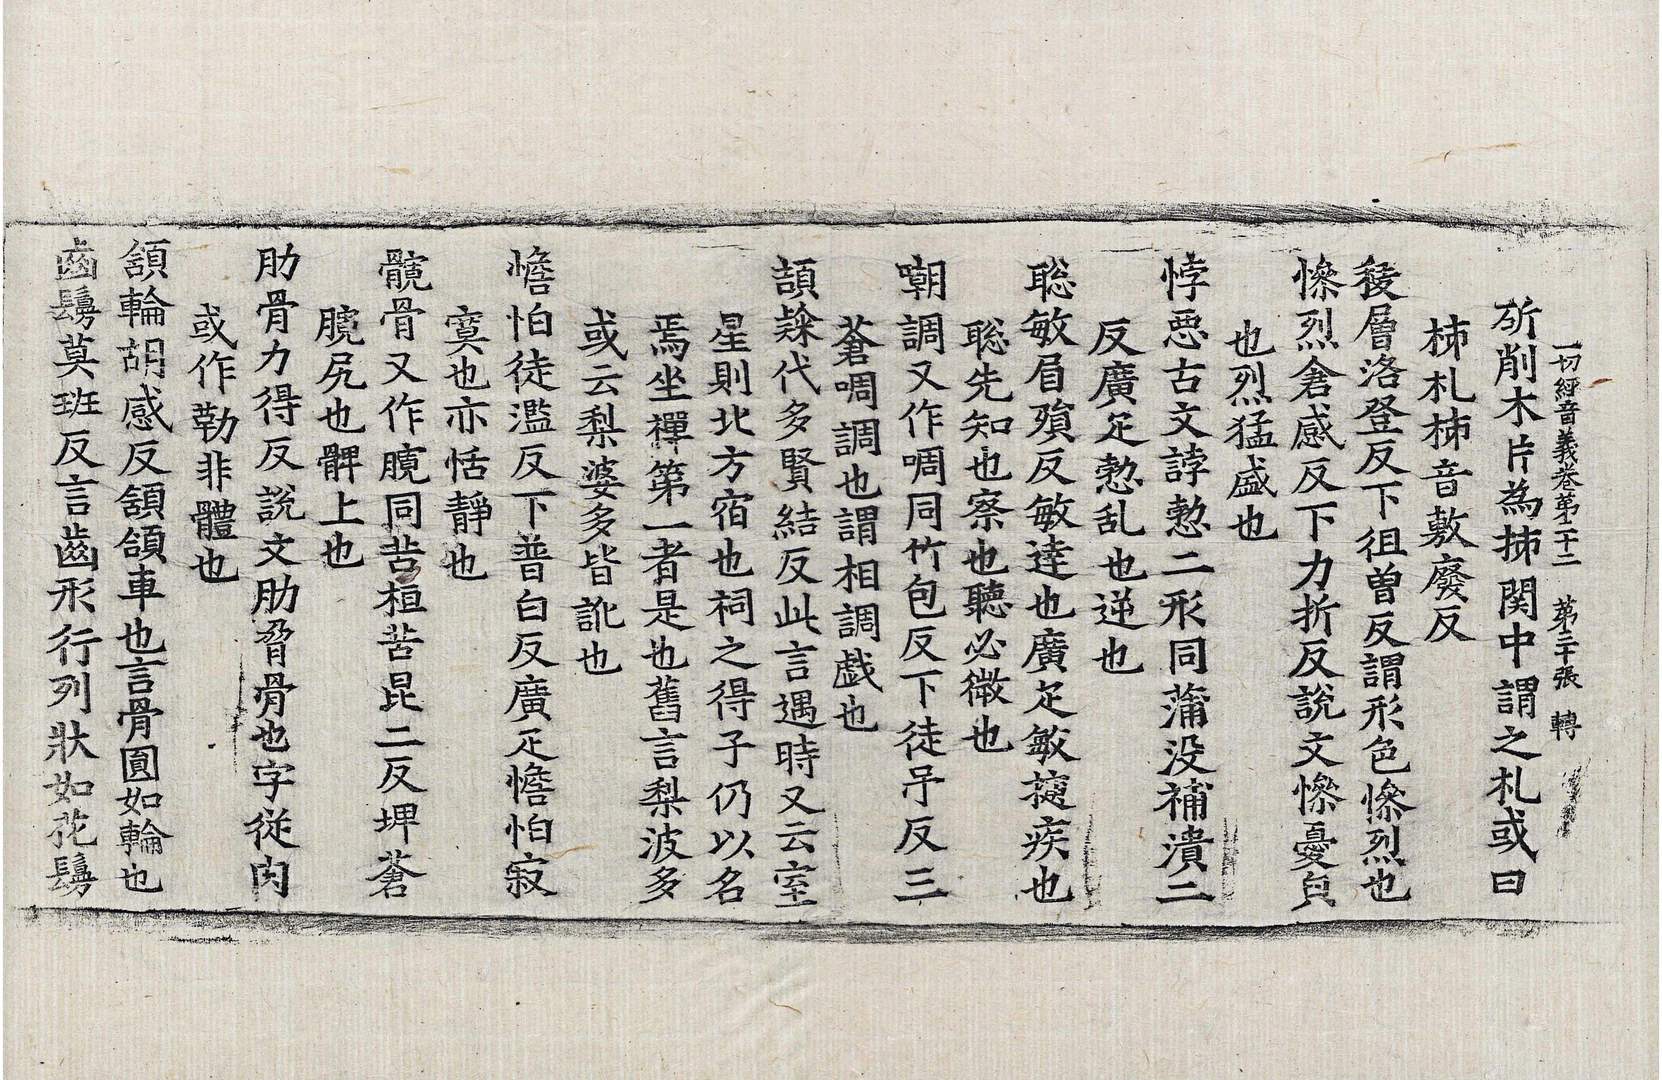 一切經音義卷第二十二 第三十張 轉
斫削木片為柹関中謂之札或曰
柹札柹音敷廢反
稜層洛登反下徂曽反謂形色慘烈也
慘烈倉感反下力折反說文慘憂皃
也烈猛盛也
悖惡古文誖愂二形同蒲没補潰二
反廣疋愂乱也逆也
聡敏眉殞反敏達也廣疋敏䔖疾也
聡先知也察也聽必微也
嘲調又作啁同竹包反下徒弔反三
蒼啁調也謂相調戯也
頡隸代多賢結反此言遇時又云室
星則北方宿也祠之得子仍以名
焉坐禪第一者是也舊言梨波多
或云梨婆多皆訛也
憺怕徒濫反下普白反廣疋憺怕寂
寞也亦恬靜也
髖骨又作臗同苦桓苦昆二反埤蒼
臗尻也髀上也
肋骨力得反說文肋脅骨也字従肉
或作勒非體也
頷輪胡感反頷頜車也言骨圓如輪也
齒鬘莫班反言齒形行列狀如花鬘